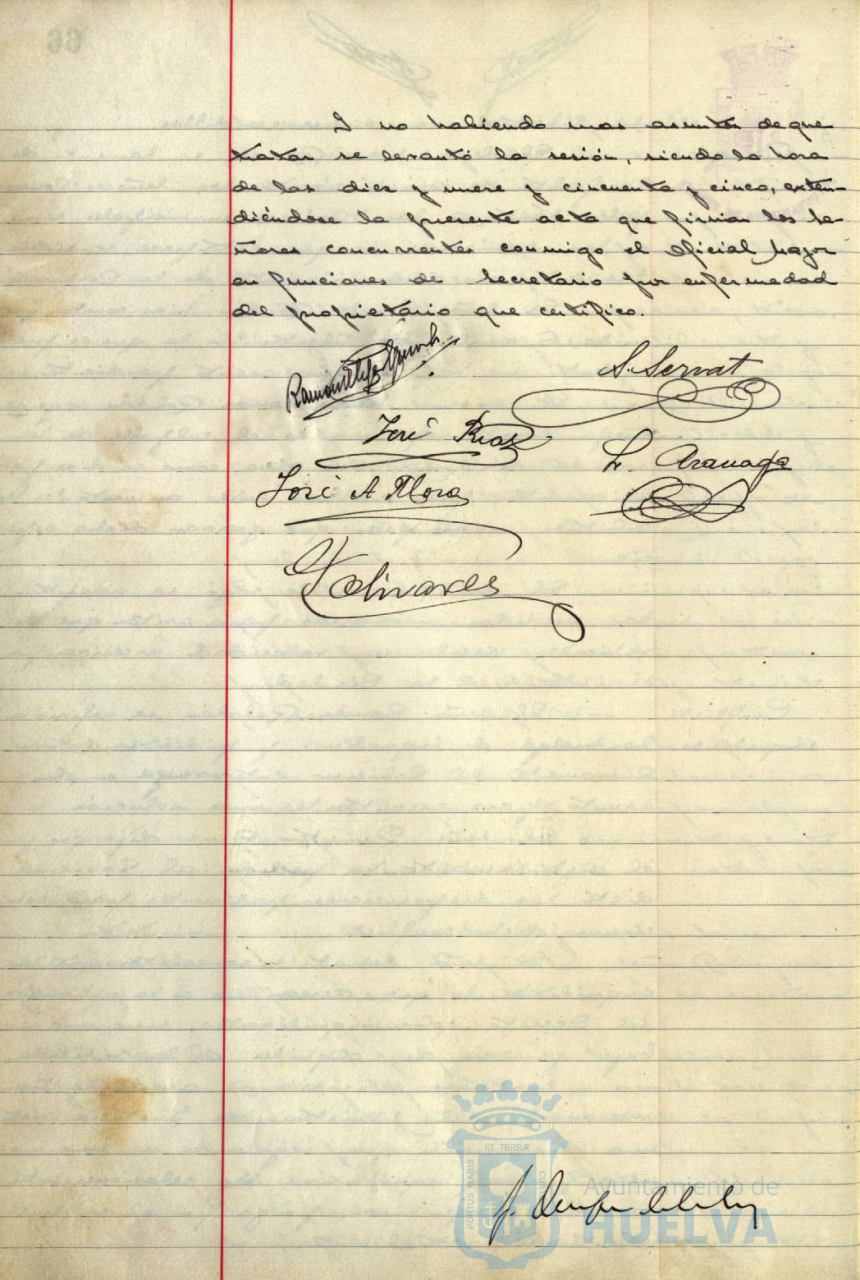 Y no habiendo mas asuntos de que
tratar se levantó la sesión, siendo la hora
de las diez y nueve y cincuenta y cinco, exten-
diéndose la presente acta que firman los se-
ñores concurrentes conmigo el Oficial Mayor
en funciones de Secretario por enfermedad
del propietario que certifico.
S. Servat
José
L. Aranaga
José A Mora
Olivares
ET TERRÆ
PORTUS MARIS
CUSTO
Ayuntamiento de
HUELVA